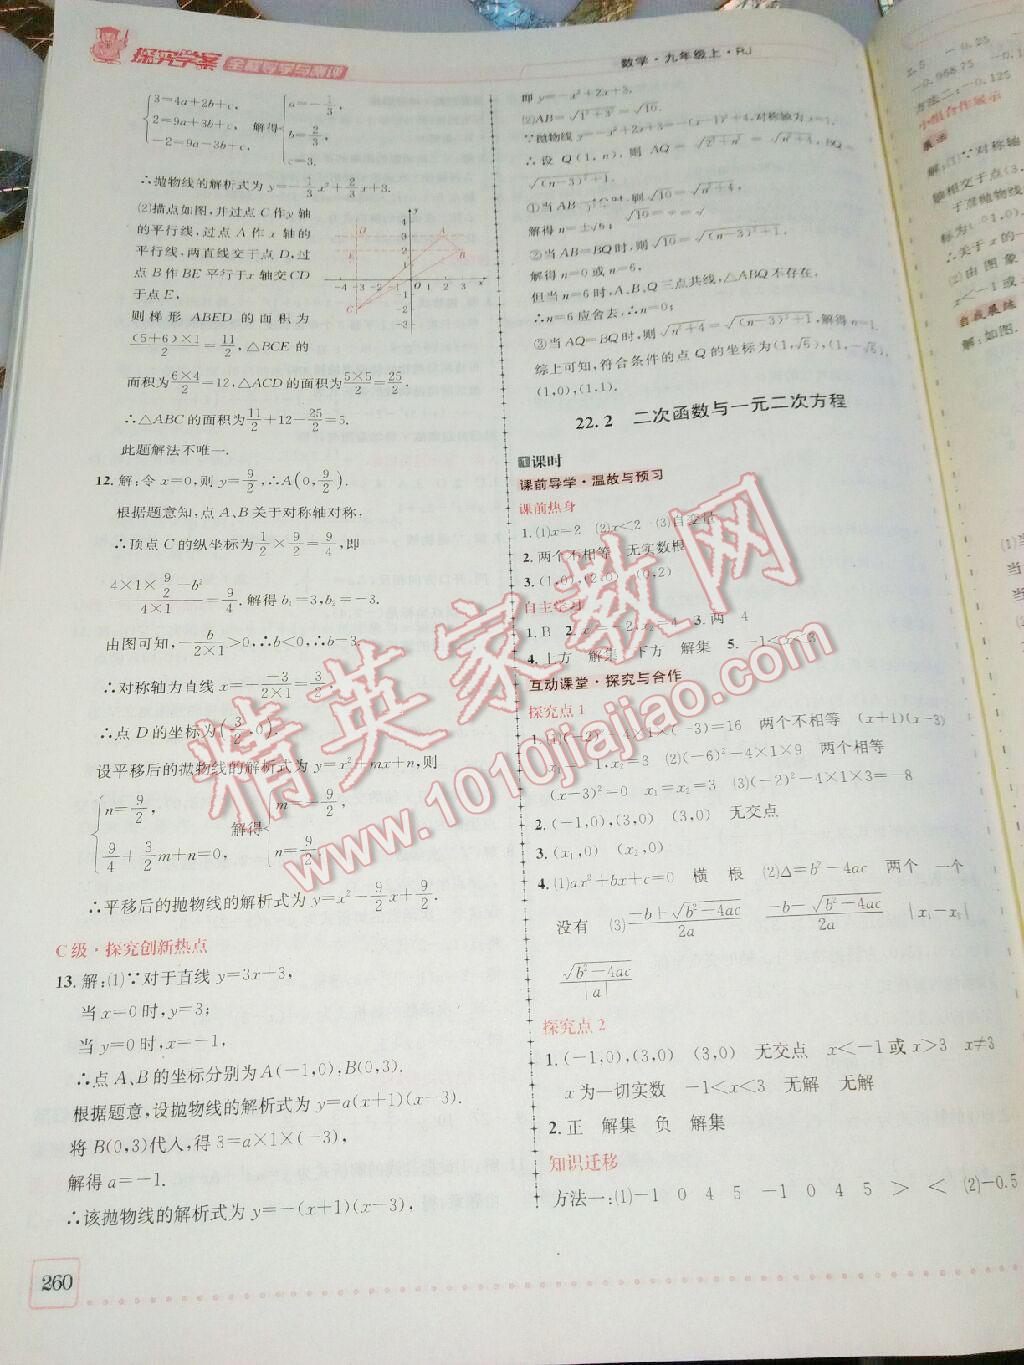 探究学案 全程导学与测评
数学·九年级上·RJ
3=4a+2b+c,
2=9a+3b+c,
-2=9a-3b+c.
解得
a=-1/3,
b=2/3,
c=3.
∴抛物线的解析式为y=-1/3x²+2/3x+3.
(2)描点如图,并过点C作y轴
的平行线,过点A作x轴的
平行线,两直线交于点D,过
点B作BE平行于x轴交CD
于点E,
则梯形ABED的面积为
(5+6)×1/2=11/2,△BCE的
面积为6×4/2=12,△ACD的面积为5×5/2=25/2.
∴△ABC的面积为11/2+12-25/2=5.
此题解法不唯一.
12.解:令x=0,则y=9/2,∴A(0,9/2).
根据题意知,点A、B关于对称轴对称.
∴顶点C的纵坐标为1/2×9/2=9/4,即
(4×1×9/2-b²)/(4×1)=9/4.解得b₁=3,b₂=-3.
由图可知,-b/(2×1)>0,∴b<0,∴b=-3.
∴对称轴为直线x=-(-3)/(2×1)=3/2.
∴点D的坐标为(3/2,0).
设平移后的抛物线的解析式为y=x²+mx+n,则
n=9/2,
9/4+3/2m+n=0,
解得
m=-9/2,
n=9/2.
∴平移后的抛物线的解析式为y=x²-9/2x+9/2.
C级·探究创新热点
13.解:(1)∵对于直线y=3x+3,
当x=0时,y=3;
当y=0时,x=-1,
∴点A、B的坐标分别为A(-1,0),B(0,3).
根据题意,设抛物线的解析式为y=a(x+1)(x-3).
将B(0,3)代入,得3=a×1×(-3),
解得a=-1.
∴该抛物线的解析式为y=-(x+1)(x-3),
260
即y=-x²+2x+3.
(2)AB=√(1²+3²)=√10.
∵抛物线y=-x²+2x+3=-(x-1)²+4,对称轴为x=1.
∴设Q(1,n),则AQ=√(2²+n²)=√(n²+4),BQ=
√((n-3)²+1).
①当AB=AQ时,则√10=√(n²+4),
解得n=±√6;
②当AB=BQ时,则√10=√((n-3)²+1),
解得n=0或n=6,
但当n=6时,A、B、Q三点共线,△ABQ不存在,
∴n=6应舍去.∴n=0;
③当AQ=BQ时,则√(n²+4)=√((n-3)²+1),解得n=1.
综上可知,符合条件的点Q的坐标为(1,√6),(1,-√6),
(1,0),(1,1).
22.2 二次函数与一元二次方程
1课时
课前导学·温故与预习
课前热身
1.(1)x=2 (2)x<2 (3)自变量
2.两个不相等 无实数根
3.(1,0),(2,0) (0,2)
自主学习
1.B 2.x₁=-2,x₂=4 3.两 4
4.上方 解集 下方 解集 5.-1<x<3
互动课堂·探究与合作
探究点1
1.(1)(-2)²-4×1×(-3)=16 两个不相等 (x+1)(x-3)
x₁=-1,x₂=3 (2)(-6)²-4×1×9 两个相等
(x-3)²=0 x₁=x₂=3 (3)(-2)²-4×1×3=-8
2.(-1,0),(3,0) (3,0) 无交点
3.(x₁,0) (x₂,0)
4.(1)ax²+bx+c=0 横 根 (2)Δ=b²-4ac 两个 一个
没有 (3)(-b+√(b²-4ac))/2a (-b-√(b²-4ac))/2a |x₁-x₂|
√(b²-4ac)/|a|
探究点2
1.(-1,0),(3,0) (3,0) 无交点 x<-1或x>3 x≠3
x为一切实数 -1<x<3 无解 无解
2.正 解集 负 解集
知识迁移
方法一:(1)-1 0 4 5 -1 0 4 5 > < (2)-0.5
-0.25
-0.96875
方法二:-0.125
小组合作展示
展示
解:(1)∵对称轴
轴相交于点(3,
于是抛物线
标为(-1,0),
∴关于x的一
(2)由图象
x<-1或
自我展示
解:如图.
精英家教网
www.1010jiajiao.com